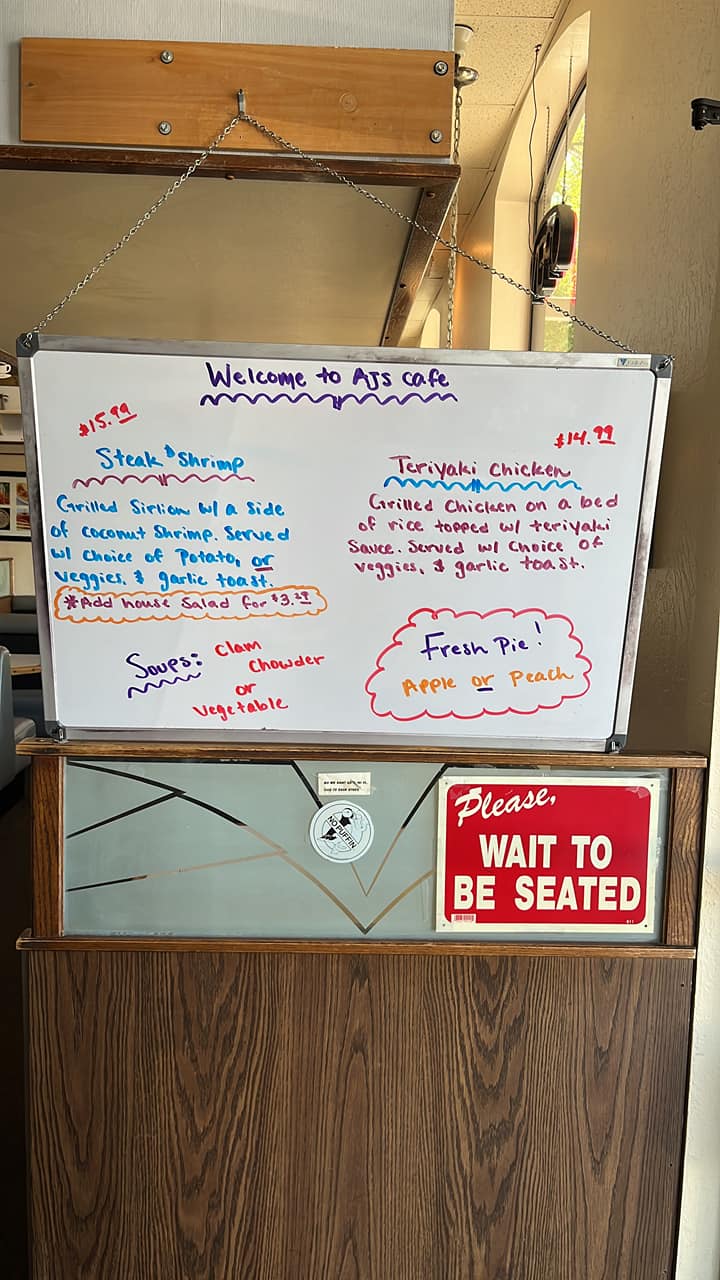 Welcome to AJs cafe
$15.99
Steak & Shrimp
Grilled Sirlion w/ a side
of coconut Shrimp. Served
w/ choice of Potato, or
veggies, & garlic toast.
*Add house Salad for $3.29
$14.99
Teriyaki Chicken
Grilled Chicken on a bed
of rice topped w/ teriyaki
Sauce. Served w/ choice of
veggies, & garlic toast.
Soups:
Clam
Chowder
or
Vegetable
Fresh Pie!
Apple or Peach
NO PUFFIN
Please,
WAIT TO
BE SEATED